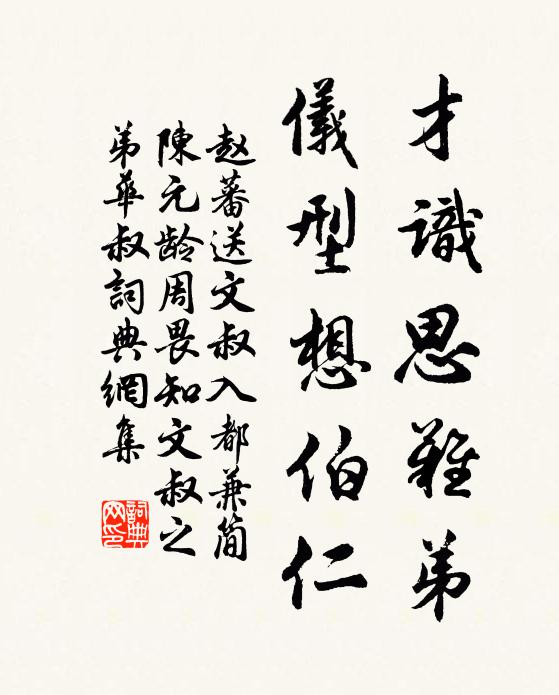 才識思難弟
儀型想伯仁
赵蕃送文叔入都兼简
陳元龄周畏知文叔之
弟華叔詞典網集
詞典网印